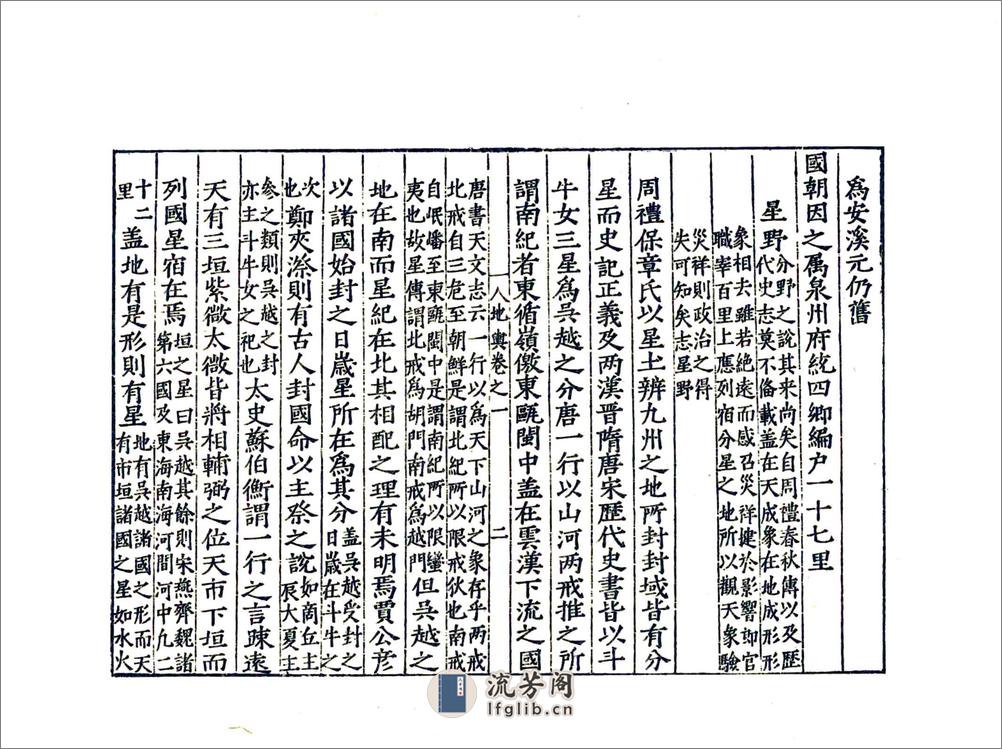 爲安溪元仍舊
國朝因之屬泉州府統四鄉編户一十七里
星野
分野之說其來尚矣自周禮春秋傳以及歷
代史志莫不俻載盖在天成象在地成形形
象相去雖若絶遠而感召災祥捷於影響即官
職宰百里上應列宿分星之地所以觀天象驗
災祥則政治之得
失可知矣志星野
周禮保章氏以星土辨九州之地所封封域皆有分
星而史記正義及两漢晋隋唐宋歷代史書皆以斗
牛女三星爲吳越之分唐一行以山河两戒推之所
謂南紀者東循嶺徼東甌閩中盖在雲漢下流之國
地輿卷之一 二
唐書天文志云一行以爲天下山河之象存乎两戒
北戒自三危至朝鮮是謂北紀所以限戎狄也南戒
自岷嶓至東甌閩中是謂南紀所以限蠻
夷也故星傳謂北戒爲胡門南戒爲越門
但吳越之
地在南而星紀在北其相配之理有未明焉賈公彥
以諸國始封之日歲星所在爲其分
盖吳越受封之
日歲在斗牛之
次
也
鄭夾漈則有古人封國命以主祭之說
如商丘主
辰大夏主
參之類則吳越之封
亦主斗牛女之祀也
太史蘇伯衡謂一行之言疎遠
天有三垣紫微太微皆將相輔弼之位天市下垣而
列國星宿在焉
垣之星曰吳越其餘則宋燕齊魏諸
第六國及東海南海河間河中九二
十二
里
盖地有是形則有星
地有吳越諸國之形而天
有市垣諸國之星如水火
流芳阁
lfglib.cn